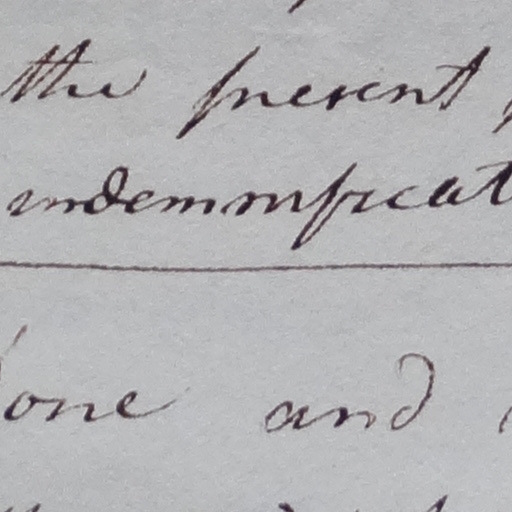 the present
indemnificat
one and